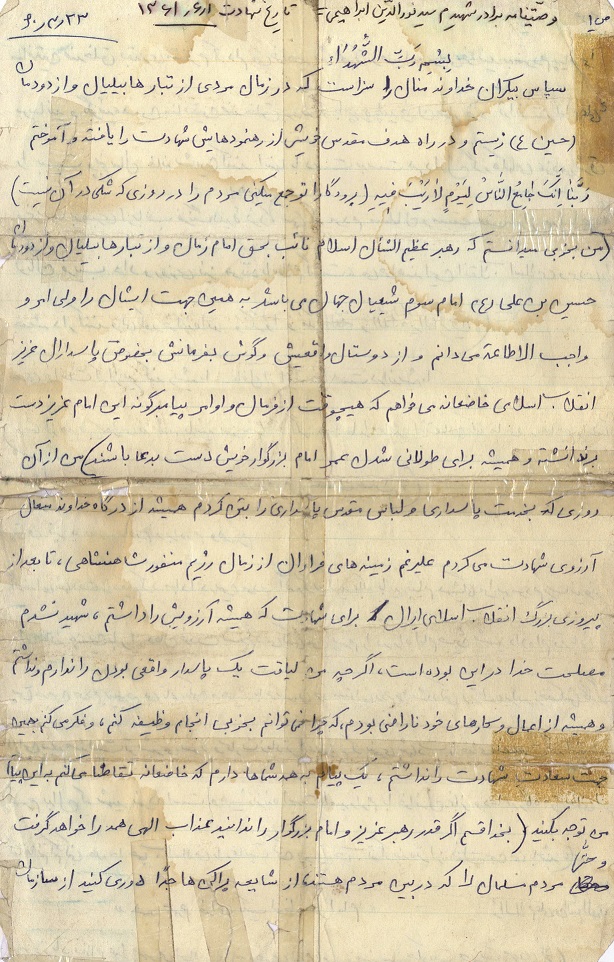 ص۱
وصیتنامه برادر شهیدم سید نورالدین ابراهیمی = تاریخ شهادت ۱۳۶۱/۶/۱
۶۰/۳/۲۳
بِسْمِهِ رَبِّ الشُّهَدٰاء
سپاس بیکران خداوند منان را سزاست که در زمان مردی از تبار هابیلیان و از دودمان
(حسین ع) زیستم و در راه هدف مقدس خویش از رهنمودهایش شهادت را یافته و آموختم
رَبَّنٰا اِنَّکَ جٰامِعُ النّٰاسْ لِیَوْمٍ لٰارَیْبَ فیهِ (پروردگارا تو جمع میکنی مردم را در روزی که شکی در آن نیست)
(من بخوبی میدانستم که رهبر عظیم الشان اسلام نائب بحق امام زمان و از تبار هابیلیان و از دودمان
حسین بن علی (ع) امام سوم شیعیان جهان می باشد به همین جهت ایشان را ولی امر و
واجب الاطاعة می دانم و از دوستان واقعیش و گوش بفرمانش بخصوص پاسداران عزیز
انقلاب اسلامی خاضعانه می خواهم که هیچوقت از فرمان و اوامر پیامبرگونه این امام عزیز دست
برنداشته و همیشه برای طولانی شدن عمر امام بزرگوار خویش دست بدعا باشند) من از آن
روزی که بخدمت پاسداری و لباس مقدس پاسداری را بتن کردم همیشه از درگاه خداوند متعال
آرزوی شهادت می کردم علیرغم زمینه های فراوان از زمان رژیم منفور شاهنشاهی، تا بعد از
پیروزی بزرگ انقلاب اسلامی ایران برای شهادت که همیشه آرزویش را داشتم، شهید نشدم
مصلحت خدا در این بوده است، اگرچه من لیاقت یک پاسدار واقعی بودن را ندارم و نداشتم
و همیشه از اعمال و کارهای خود ناراضی بودم، که چرا نمی توانم بخوبی انجام وظیفه کنم، و فکر می کنم بهمین
جهت سعادت شهادت را نداشتم، یک پیام به همه شماها دارم که خاضعانه تقاضا می کنم به این پیام
می توجه بکنید (بخدا قسم اگر قدر رهبر عزیز و امام بزرگوار را ندانید عذاب الهی همه را خواهد گرفت
و حتّٰا
مردم مسلمان را که در بین مردم هستند، از شایعه پراکنی ها جدّاً دوری کنید از سازمان